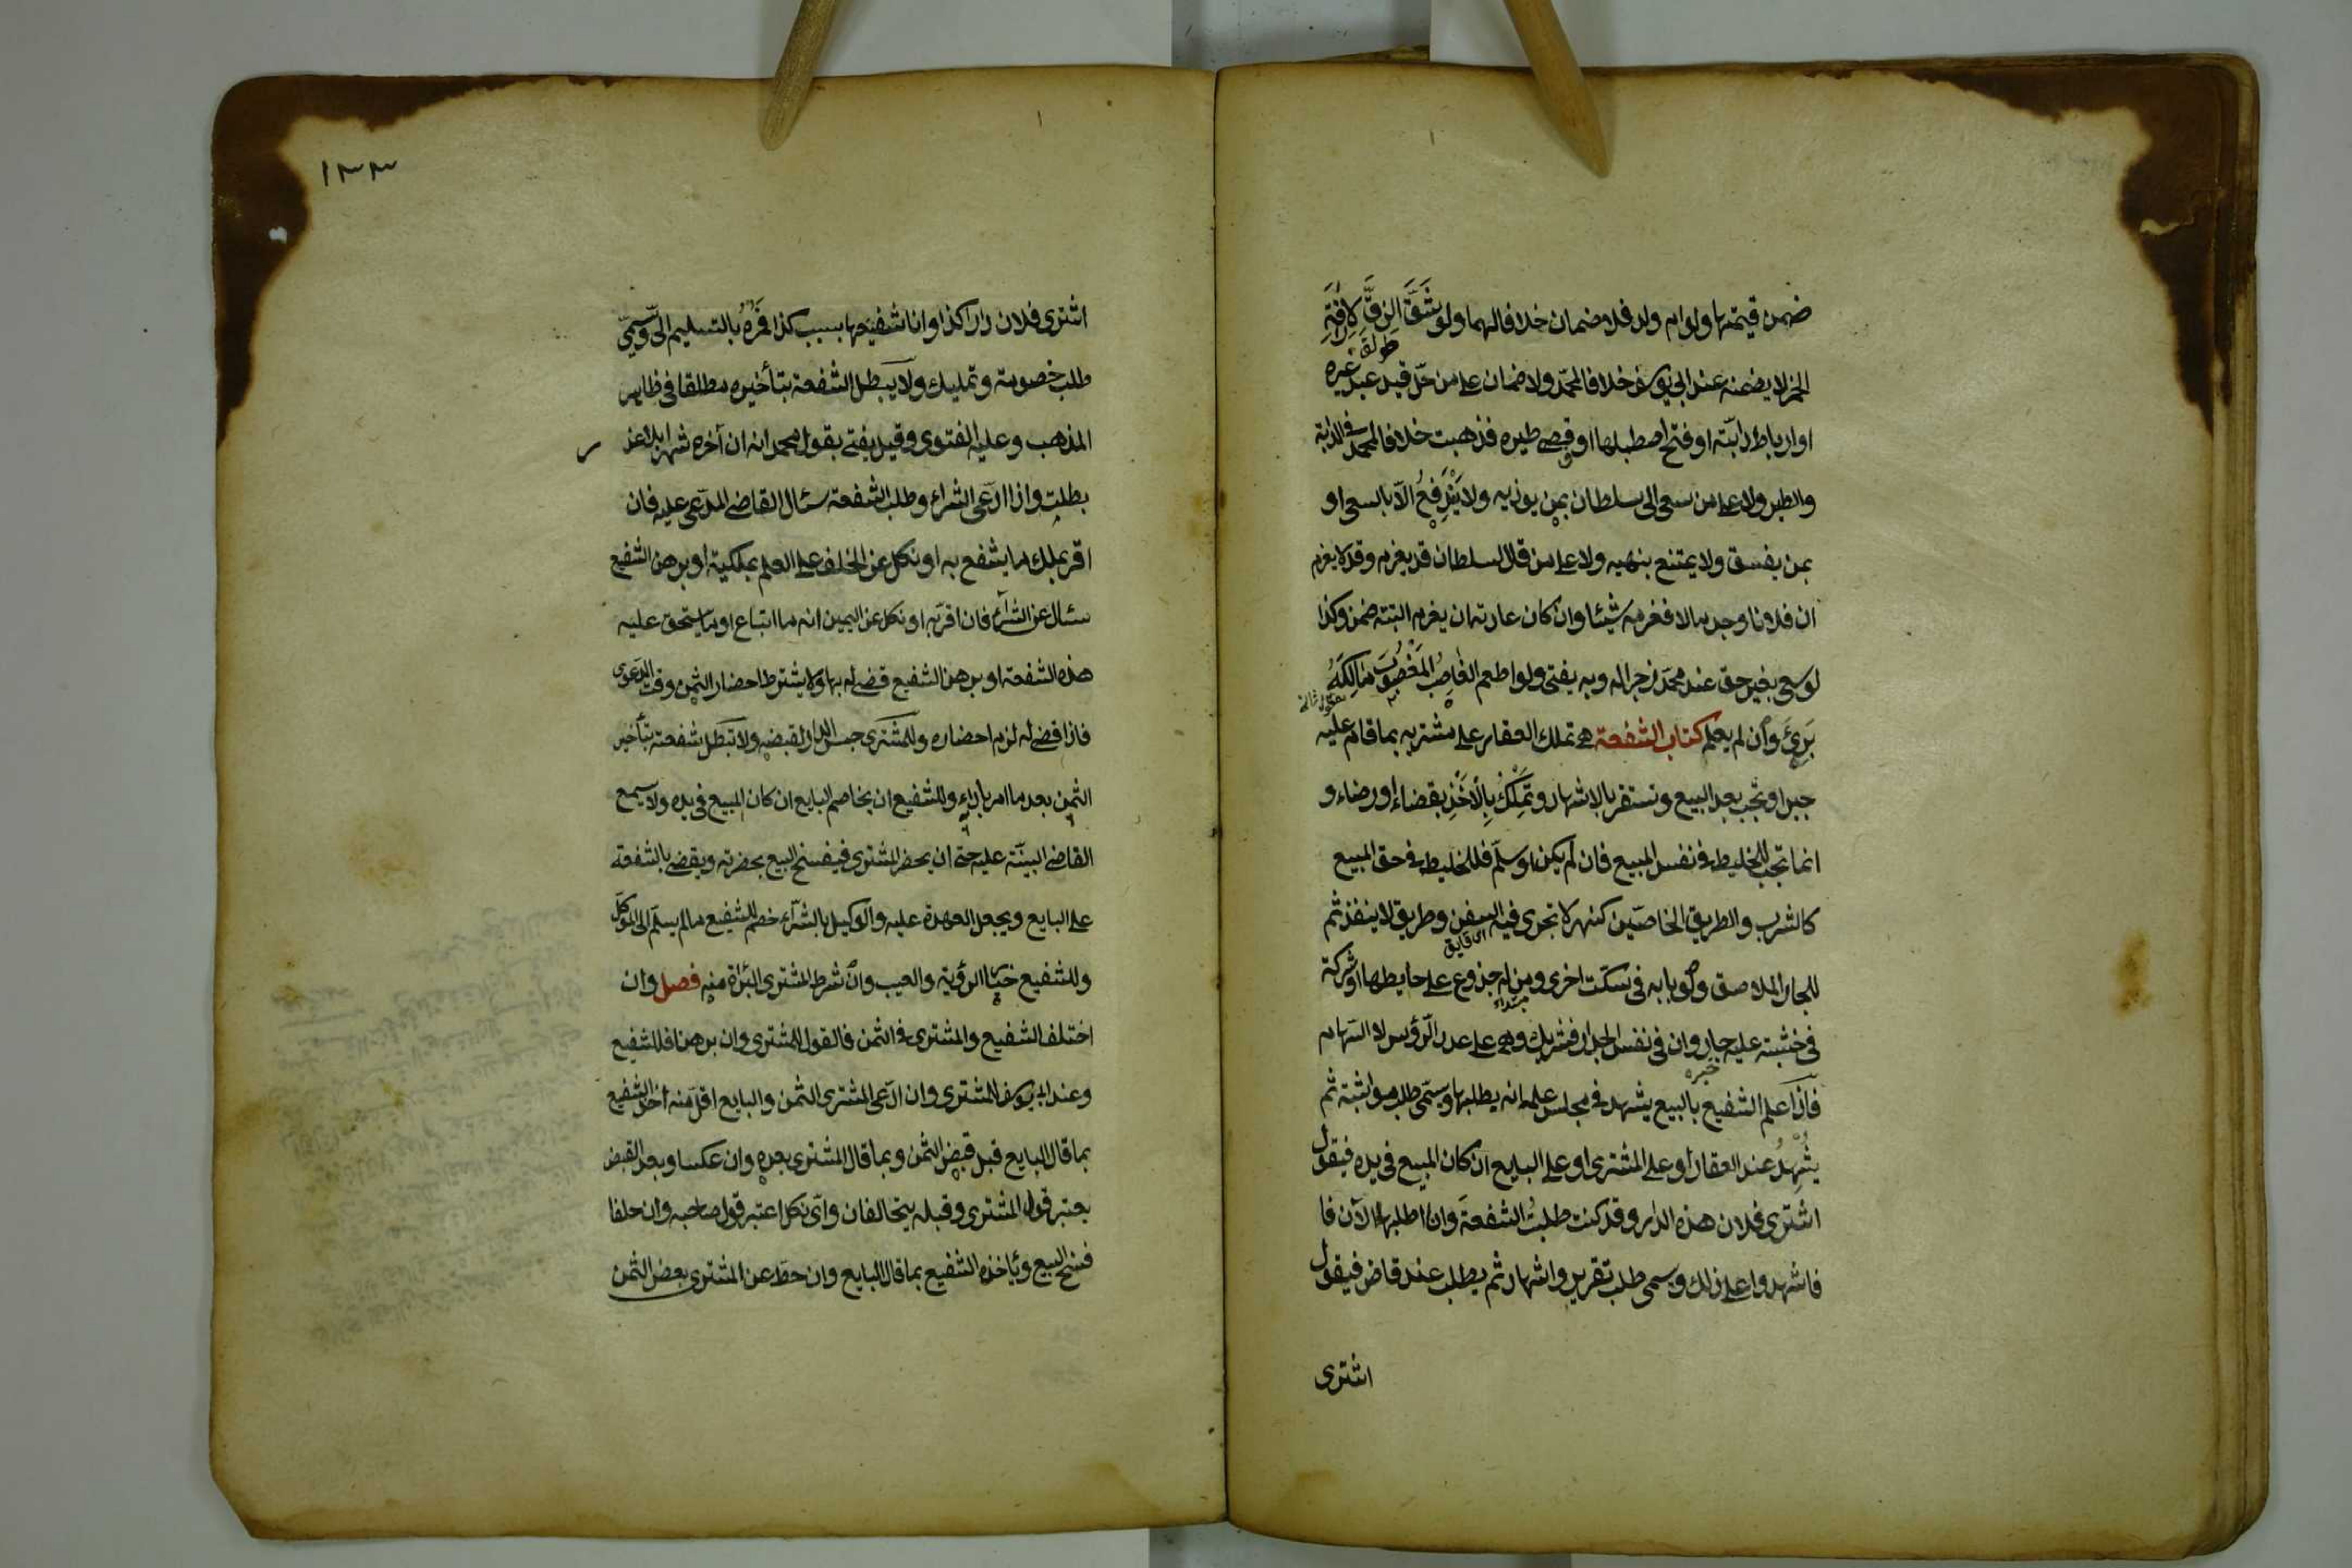 ضمن قيمتها ولو ام ولد فلا ضمان خلافا لهما ولو شق الزق لاراقة
الخمر لا يضمنه عند ابي يوسف خلافا لمحمد ولا ضمان على من حل قيد عبد غيره
او رباط دابته او فتح اصطبلها او قفص طيره فذهبت خلافا لمحمد في الدابة
والطير ولا على من سعى الى سلطان بمن يوذيه ولا يندفع الا بالسعى او
بمن يفسق ولا يمتنع بنهيه ولا على من قال لسلطان قد يغرم وقد لا يغرم
ان فلانا وجد مالا فغرمه شيئا وان كان عادته ان يغرم البتة ضمن وكذا
لو سعى بغير حق عند محمد زجرا له وبه يفتى ولو اطعم الغاصب المغصوب مالكه
برئ وان لم يعلم كتاب الشفعة هي تملك العقار على مشتريه بما قام عليه
جبرا وتجب بعد البيع وتستقر بالاشهاد وتملك بالاخذ بقضاء او رضاء و
انما تجب للخليط في نفس المبيع فان لم يكن او سلم فللخليط في حق المبيع
كالشرب والطريق الخاصين كنهر لا تجرى فيه السفن وطريق لا ينفذ ثم
للجار الملاصق ولو بابه في سكة اخرى ومن له جذوع على حايطها او شركة
في خشبة عليه جار وان في نفس الجدار فشريك وهي على عدد الرؤس لا السهام
فاذا علم الشفيع بالبيع يشهد في مجلس علمه انه يطلبها ويسمى طلب مواثبة ثم
يشهد عند العقار او على المشترى او على البايع ان كان المبيع في يده فيقول
اشترى فلان هذه الدار وقد كنت طلبت الشفعة وانا اطلبها الآن فا
فاشهدوا على ذلك ويسمى طلب تقرير واشهاد ثم يطلب عند قاض فيقول
اشترى
١٣٣
اشترى فلان دار كذا وانا شفيعها بسبب كذا فمره بالتسليم الى ويسمى
طلب خصومة وتمليك ولا يبطل الشفعة بتأخيره مطلقا في ظاهر
المذهب وعليه الفتوى وقيل يفتى بقول محمد انه ان آخره شهرا بلا عذر
بطلت واذا ادعى الشراء وطلب الشفعة سئال القاضى المدعى عليه فان
اقر بملك ما يشفع به او نكل عن الحلف على العلم بملكيته او برهن الشفيع
سئال عن الشراء فان اقر به او نكل عن اليمين انه ما ابتاع او ما يستحق عليه
هذه الشفعة او برهن الشفيع قضى له بها ولا يشترط احضار الثمن وقت الدعوى
فاذا قضى له لزم احضاره وللمشترى حبس الدار لقبضه ولا تبطل شفعته بتأخير
الثمن بعد ما امر بادائه وللشفيع ان يخاصم البايع ان كان المبيع في يده ولا يسمع
القاضى البينة عليه حتى ان يحضر المشترى فيفسخ البيع بحضرته ويقضى بالشفعة
على البايع ويجعل العهدة عليه والوكيل بالشراء خصم للشفيع ما لم يسلم الى الموكل
وللشفيع خيار الرؤية والعيب وان شرط المشترى البراءة منه فصل وان
اختلف الشفيع والمشترى في الثمن فالقول للمشترى وان برهنا فللشفيع
وعند ابي يوسف للمشترى وان ادعى المشترى الثمن والبايع اقل منه اخذ الشفيع
بما قال البايع قبل قبض الثمن وبما قال المشترى بعده وان عكسا وبعد القبض
يعتبر قول المشترى وقبله يتحالفان واى نكل اعتبر قول صاحبه وان حلفا
فسخ البيع ويأخذه الشفيع بما قال البايع وان حط عن المشترى بعض الثمن